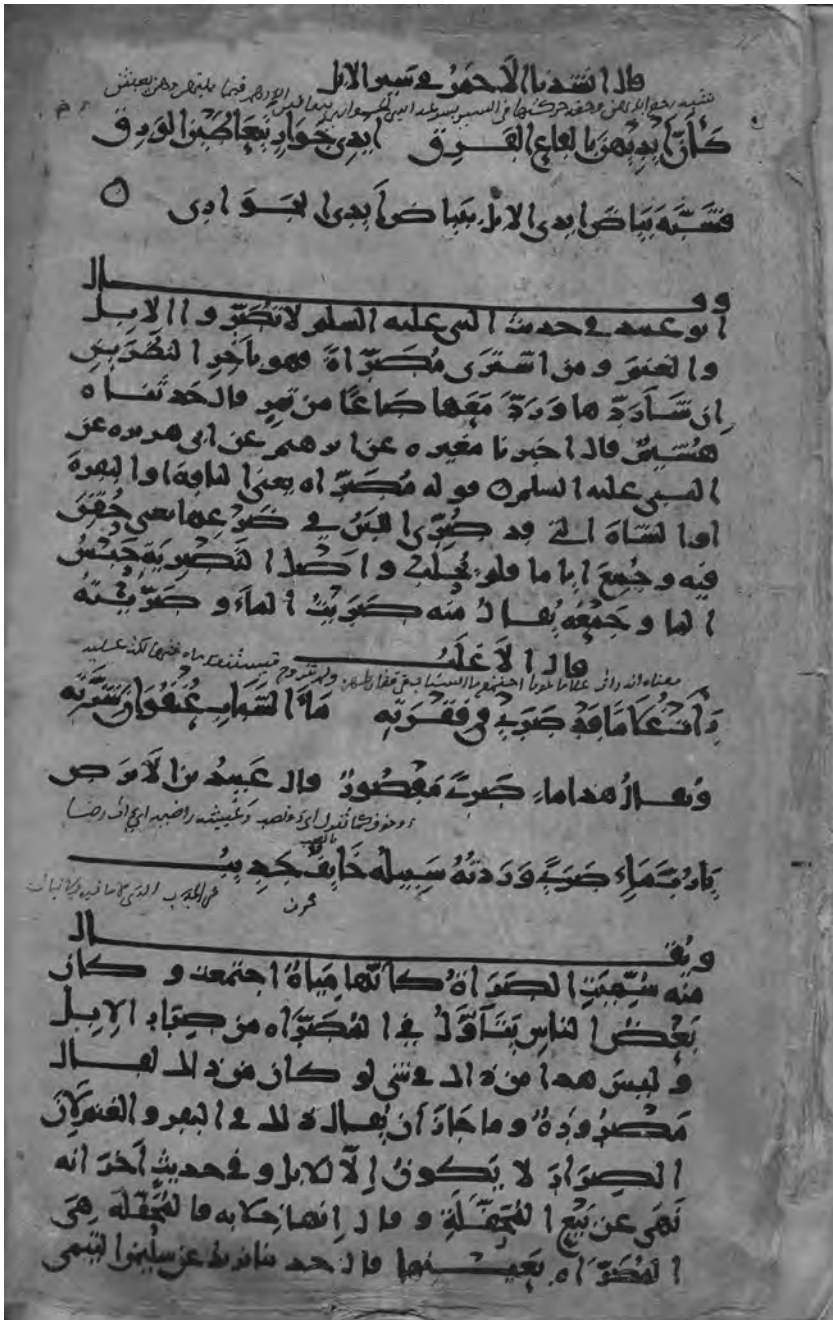 قال انشدنا الاحمر في سير الابل
كَأَنَّ أَيْدِيهِنَّ بِالقَاعِ القَرِقْ أَيْدِي جَوَارٍ يَتَعَاطَيْنَ الوَرِقْ
فشَبَّهَ بَيَاضَ ايدي الابل ببياض أيدي الجَوَاري
وقال
ابو عبيد في حديث النبي عليه السلم لا تُصَرُّوا الابل
والغنم ومن اشترى مُصَرَّاةً فهو بآخِرِ النظرَيْنِ
إن شَآ رَدَّها وَرَدَّ مَعَها صَاعًا من تمرٍ قال حَدثنـاه
هُشَيمٌ قال اخبرنا مغيره عن ابرهيم عن ابي هريره عن
النبي عليه السلم قوله مُصَرَّاه يعني الناقة او البقرة
او الشاة التي قد صُرِّيَ اللبَنُ في ضَرْعِها يعني حُقِنَ
فيه وجُمِعَ اياما فلم يُحلَبْ واصْلُ التَصْرِيَةِ حَبْسُ
الما وجَمْعُه يُقال منه صَرَيْتُ الماءَ وصَرَّيْتُهُ
قال الاغلب
رَأَتْ غُلَامًا قد صَرَى في فِقْرَتِهِ مَاءَ الشَبابِ عُنْفُوَانَ شِرَّتِه
ويقال هذا ماء صَرًى مَقصُورٌ قال عَبِيدُ بن الابرص
يَا رُبَّ مَاءٍ صَرًى وَرَدتُهُ سَبِيلُهُ خَائِفٌ جَدِيبُ
ويقال
منه سُمِّيَتِ المصَرَّاةُ كأنّها مِيَاهٌ اجتمعت وكان
بَعْضُ الناسِ يَتَأَوَّلُ في المُصَرَّاه من صِرَارِ الإبِل
وليس هذا من ذاك في شي لو كان من ذاك لقال
مَصْرُورَةٌ وما جَازَ أن يُقال ذلك في البقر والغنم لأنَّ
الصِرَارَ لا يَكُونُ إلّا للابل وفي حديثٍ آخَرَ انه
نَهَى عن بَيْعِ المُحَفَّلَةِ وقال إنها خِلَابه فالمُحَفَّلَة هِيَ
المُصَرَّاه بِعَيْنِها قال حدثنا يزيد عن سليمن التيمي